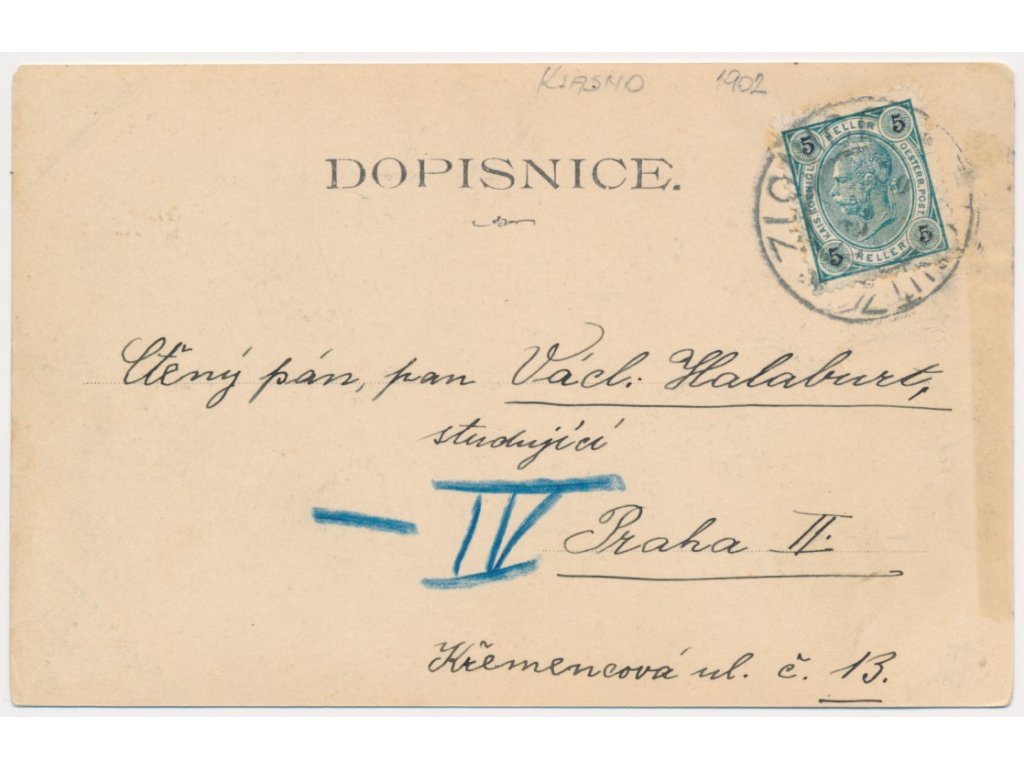 1902
DOPISNICE.
5 HELLER 5
KAIS. KÖNIGL.
OESTERR. POST.
5 HELLER 5
Ctěný pán, pan Václ. Halaburt,
studující
– IV
Praha II.
Křemencová ul. č. 13.